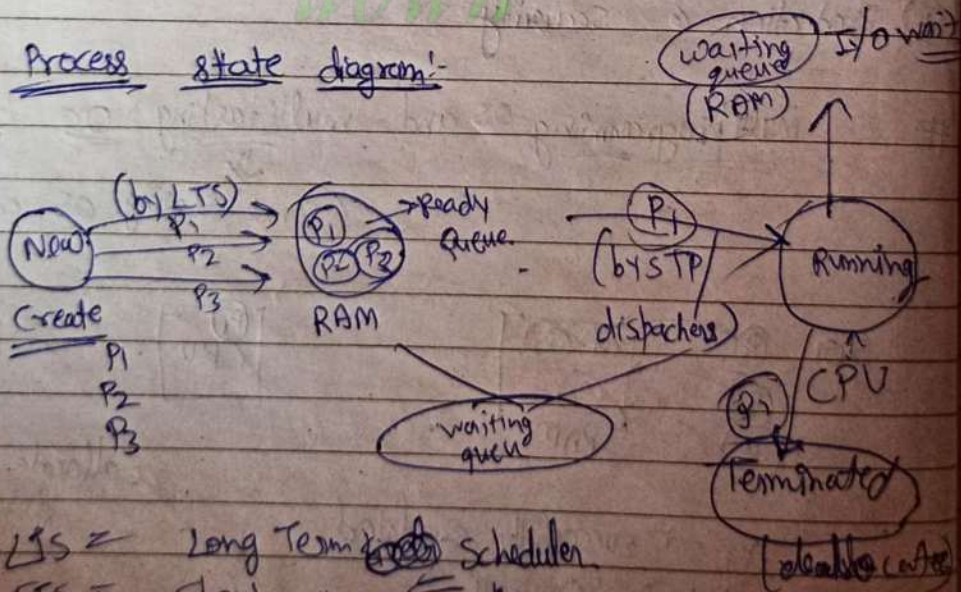 Process state diagram:-
waiting
queue
(RAM)
I/O wait
(by LTS)
P1
P2
P3
New
Create
P1
P2
P3
P1
P2 P3
Ready
Queue
RAM
P1
(by STP
dispachers)
Running
CPU
waiting
queu
P1
Terminated
LTS = Long Term Scheduler